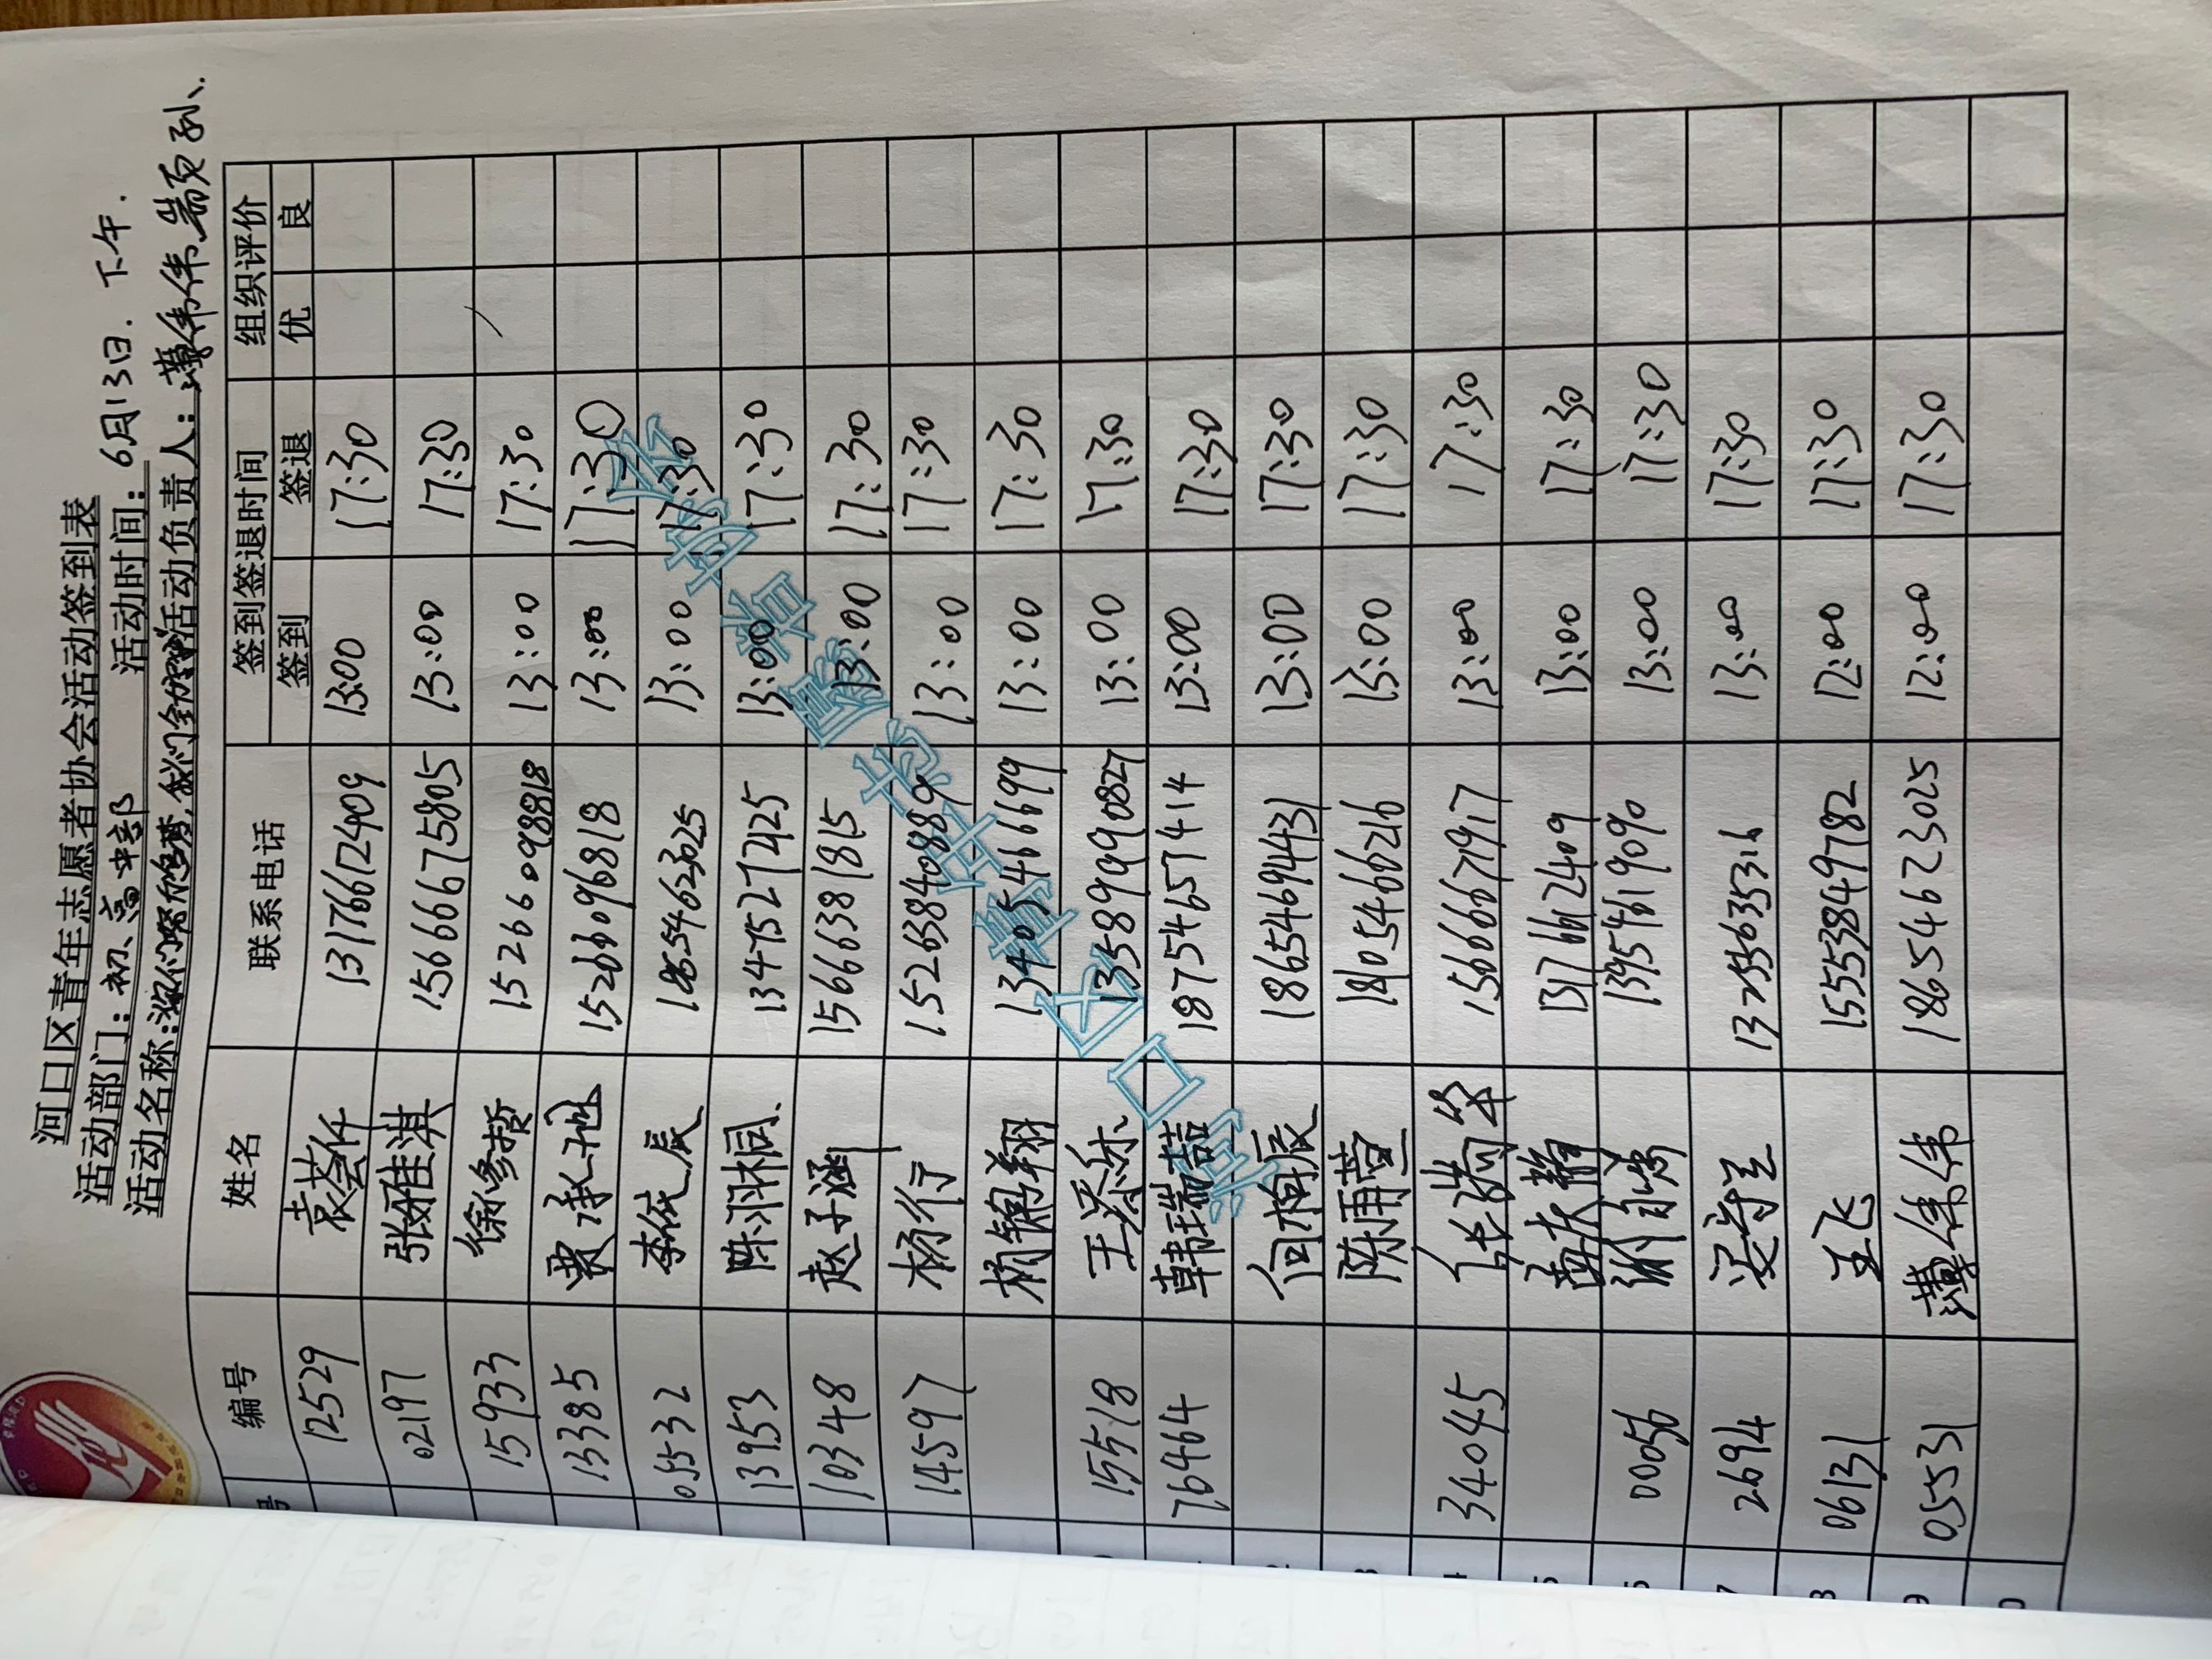 河口区青年志愿者协会活动签到表
活动部门：初、高中部 活动时间：6月13日.下午.
活动名称： 活动负责人：薄伟伟、
号 编号 姓名 联系电话 签到签退时间 组织评价
签到 签退 优 良
12529 袁荟仟 13176612409 13:00 17:30
02197 张雅淇 15666675805 13:00 17:30
15933 徐修哲 15266098818 13:00 17:30
13385 费承旭 15266096818 13:00 17:30
05532 李依辰 18654623025 13:00 17:30
13953 陈羽桐 13475272425 13:00 17:30
10348 赵子涵 15666381815 13:00 17:30
14597 杨行 15263840889 13:00 17:30
杨锦翔 13405466699 13:00 17:30
15518 王悉 13589990827 13:00 17:30
76464 韩瑞喆 18754657414 13:00 17:30
2 何栩辰 18654694431 13:00 17:30
3 陈雨萱 18105466216 13:00 17:30
4 34045 15666671917 13:00 17:30
5 13176612409 13:00 17:30
6 00056 13954619090 13:00 17:30
7 2694 13:00 17:30
8 06131 王飞 15553849782 12:00 17:30
9 05531 薄伟伟 18654623025 12:00 17:30
0
共 口区青年志愿者协会